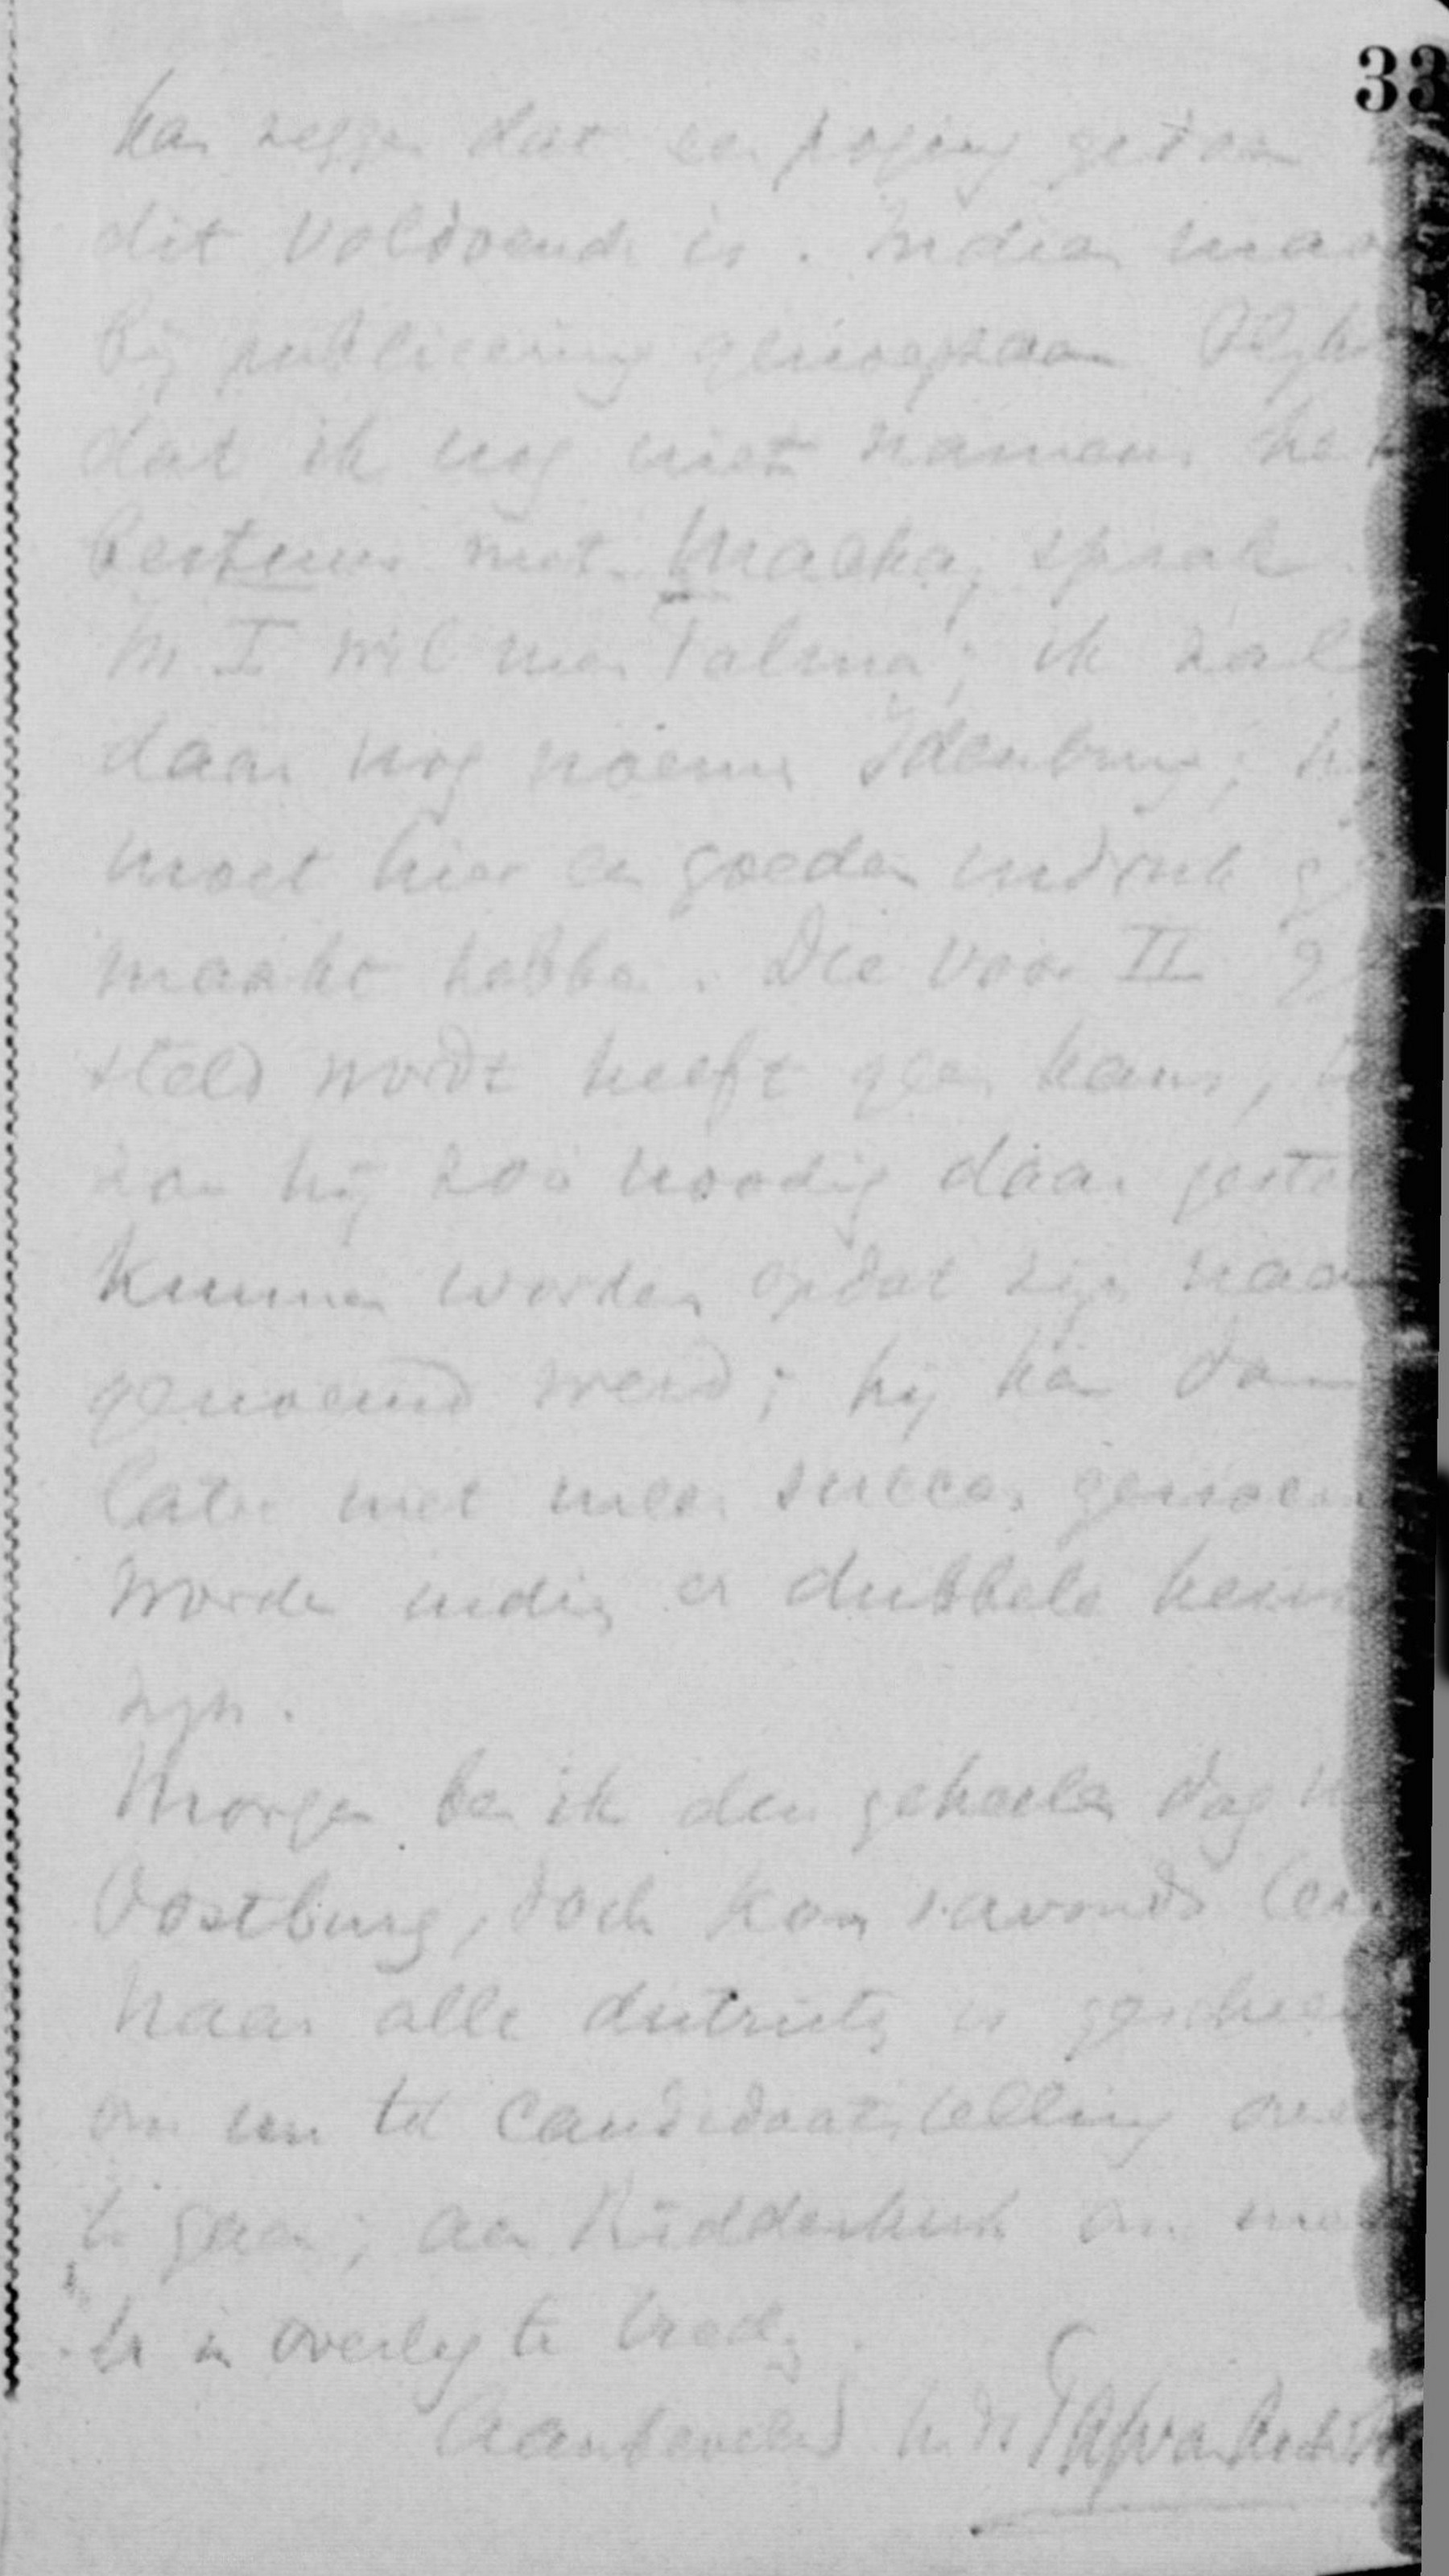 33
kan zeggen dat een poging gedaan
dit voldoende is. Indien maar
bij publiceering genoegzaam
dat ik nog niet namens het
bestuur met Mackay sprak.
In I wil men Talma; ik zal
daar nog noemen Idenburg; hij
moet hier een goeden indruk ge
maakt hebben. Die voor II ge
steld wordt heeft geen kans,
zou hij zoo noodig daar gesteld
kunnen worden opdat zijn naam
genoemd werd; hij kan dan
later met meer succes genoemd
worden indien er dubbele
zijn.
Morgen ben ik den geheelen dag in
Oostburg, doch kom 's avonds
Naar alle districten is geschreven
om nu tot candidaatstelling over
te gaan; aan Ridderkerk om
te in overleg te treden.
Aanbevelend